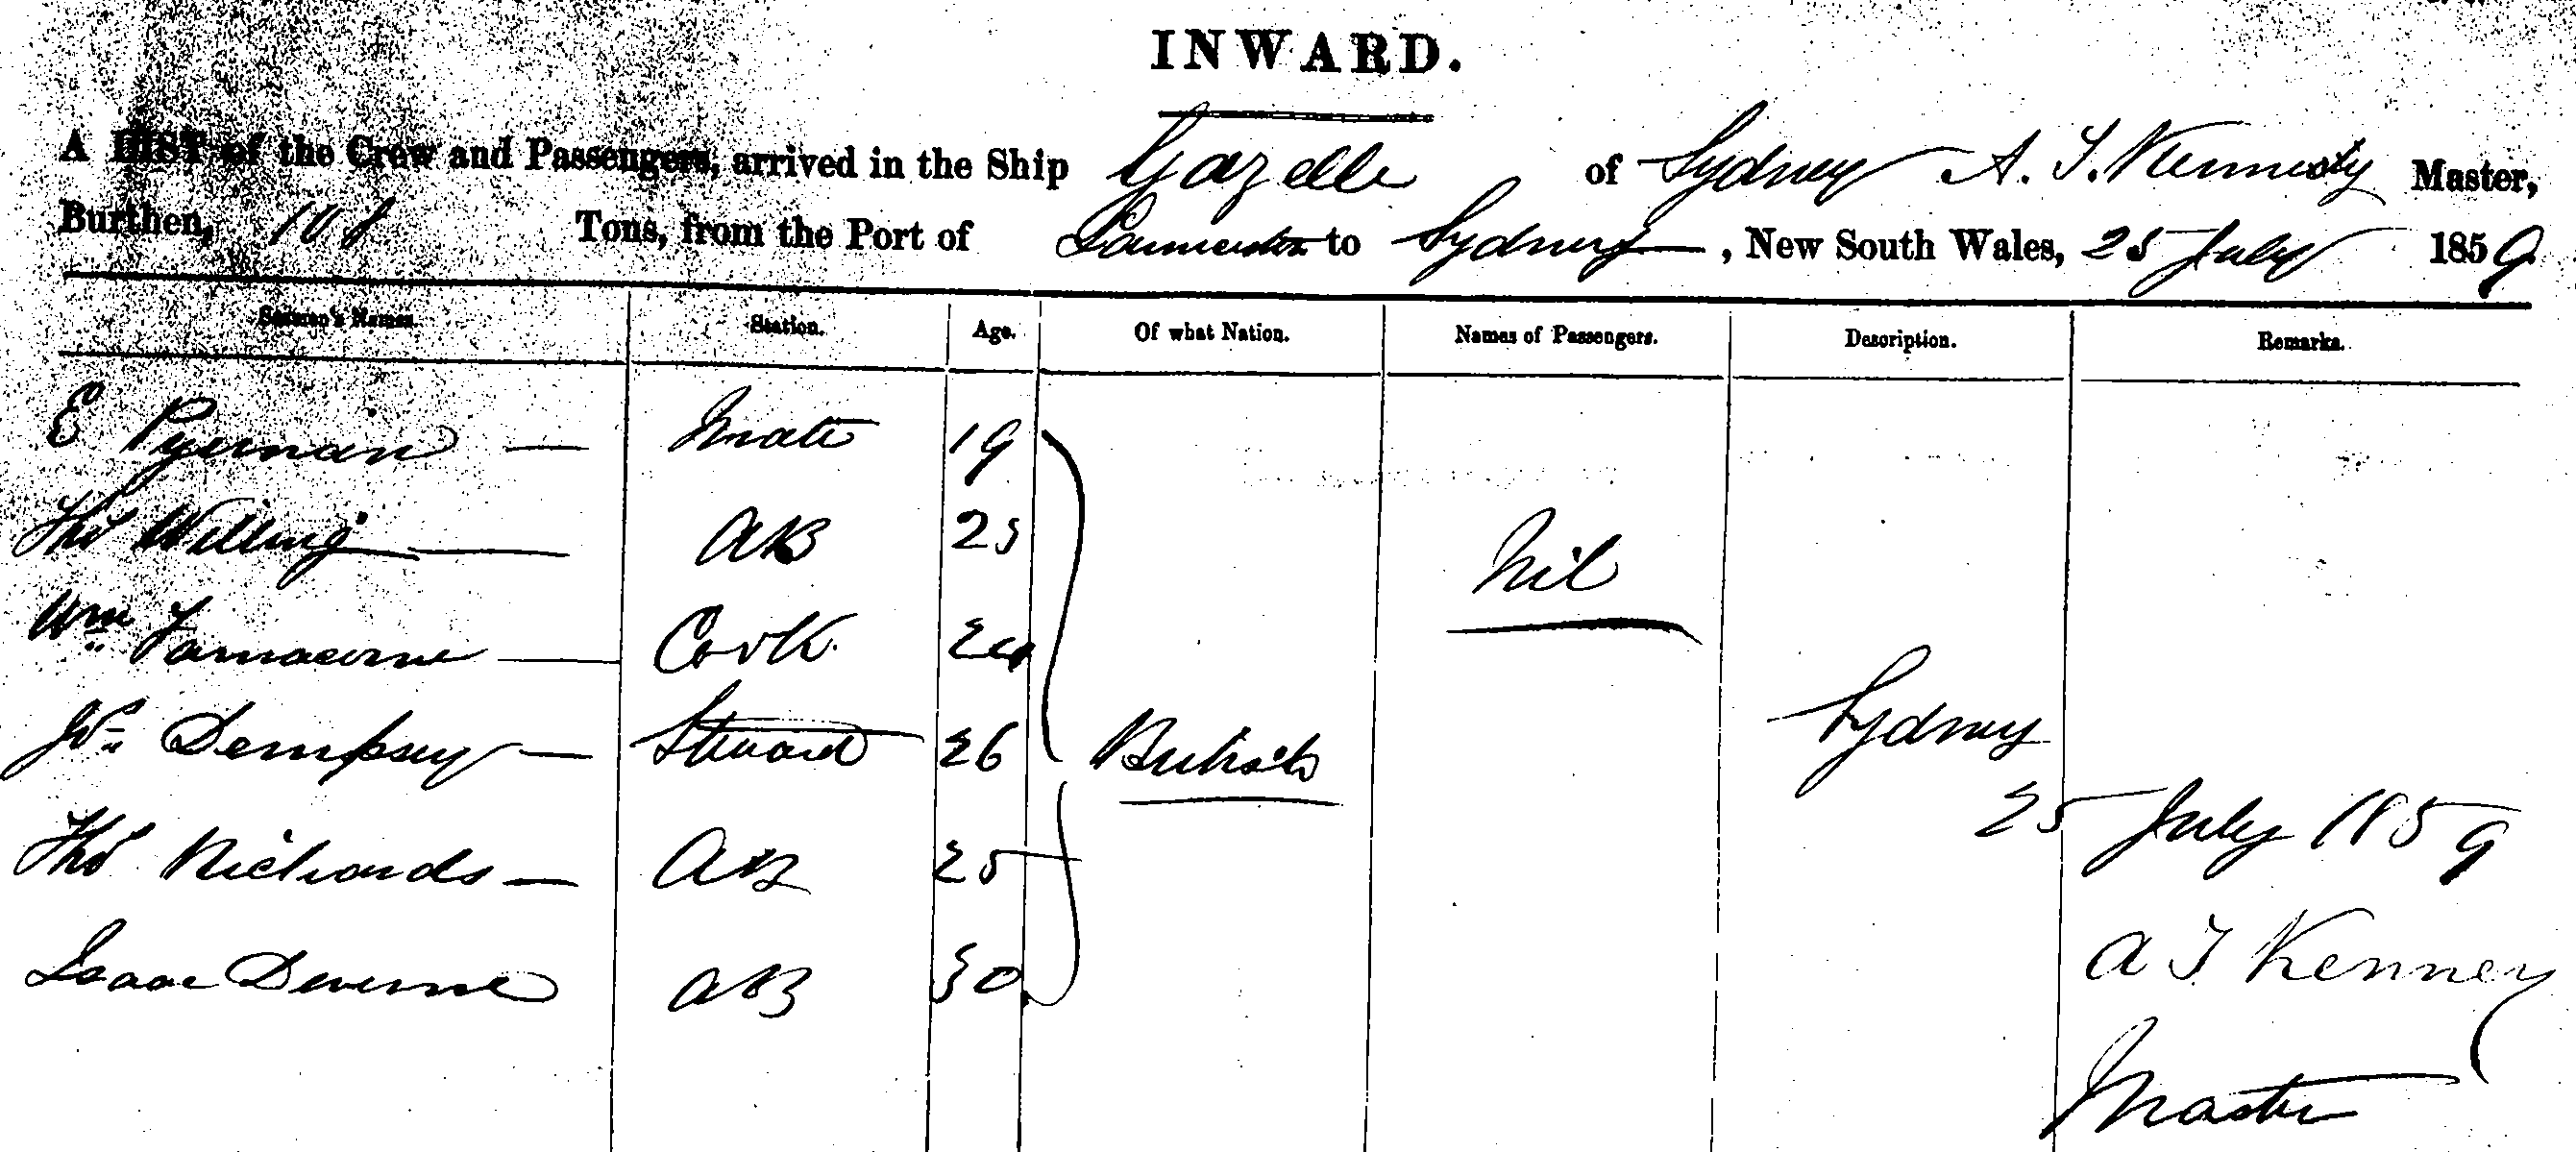 INWARD.
A LIST of the Crew and Passengers, arrived in the Ship Gazelle of Sydney A. T. Kennedy Master,
Burthen, 108 Tons, from the Port of Launceston to Sydney, New South Wales, 25 July 1859
Seaman's Names. Station. Age. Of what Nation. Names of Passengers. Description. Remarks.
E Pyerman — Mate 19
Thos Willing — AB 25
Nil
Wm — Cook 24
Jno Dempsey — Steward 26 British Sydney
Thos Richards — AB 25 25 July 1859
Isaac AB 30 A T Kenney
Master